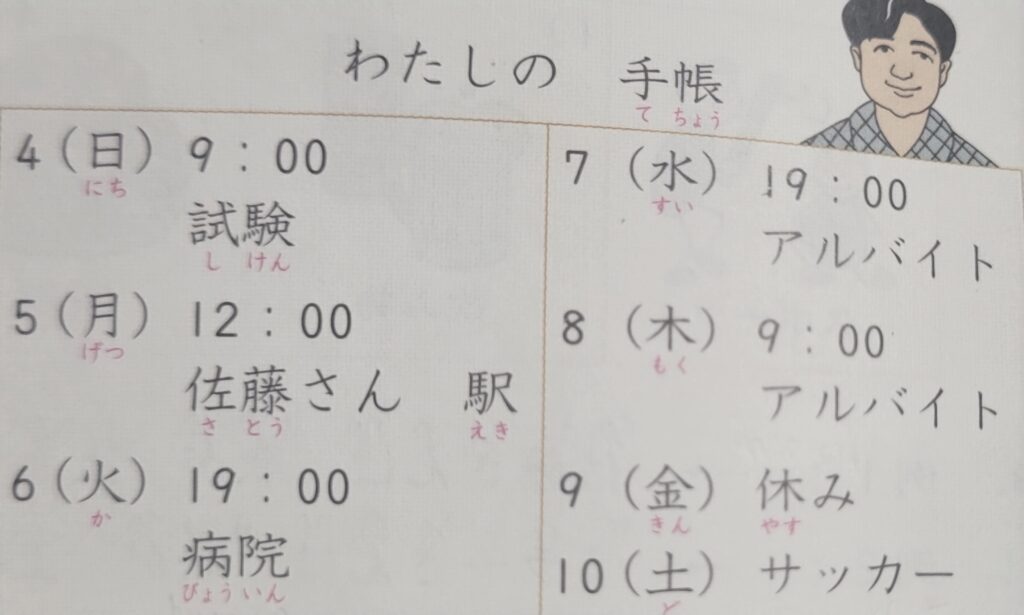 わたしの 手帳
て ちょう
4（日） 9：00
にち
試験
し けん
5（月） 12：00
げつ
佐藤さん 駅
さ とう えき
6（火） 19：00
か
病院
びょういん
7（水） 19：00
すい
アルバイト
8（木） 9：00
もく
アルバイト
9（金） 休み
きん やす
10（土） サッカー
ど